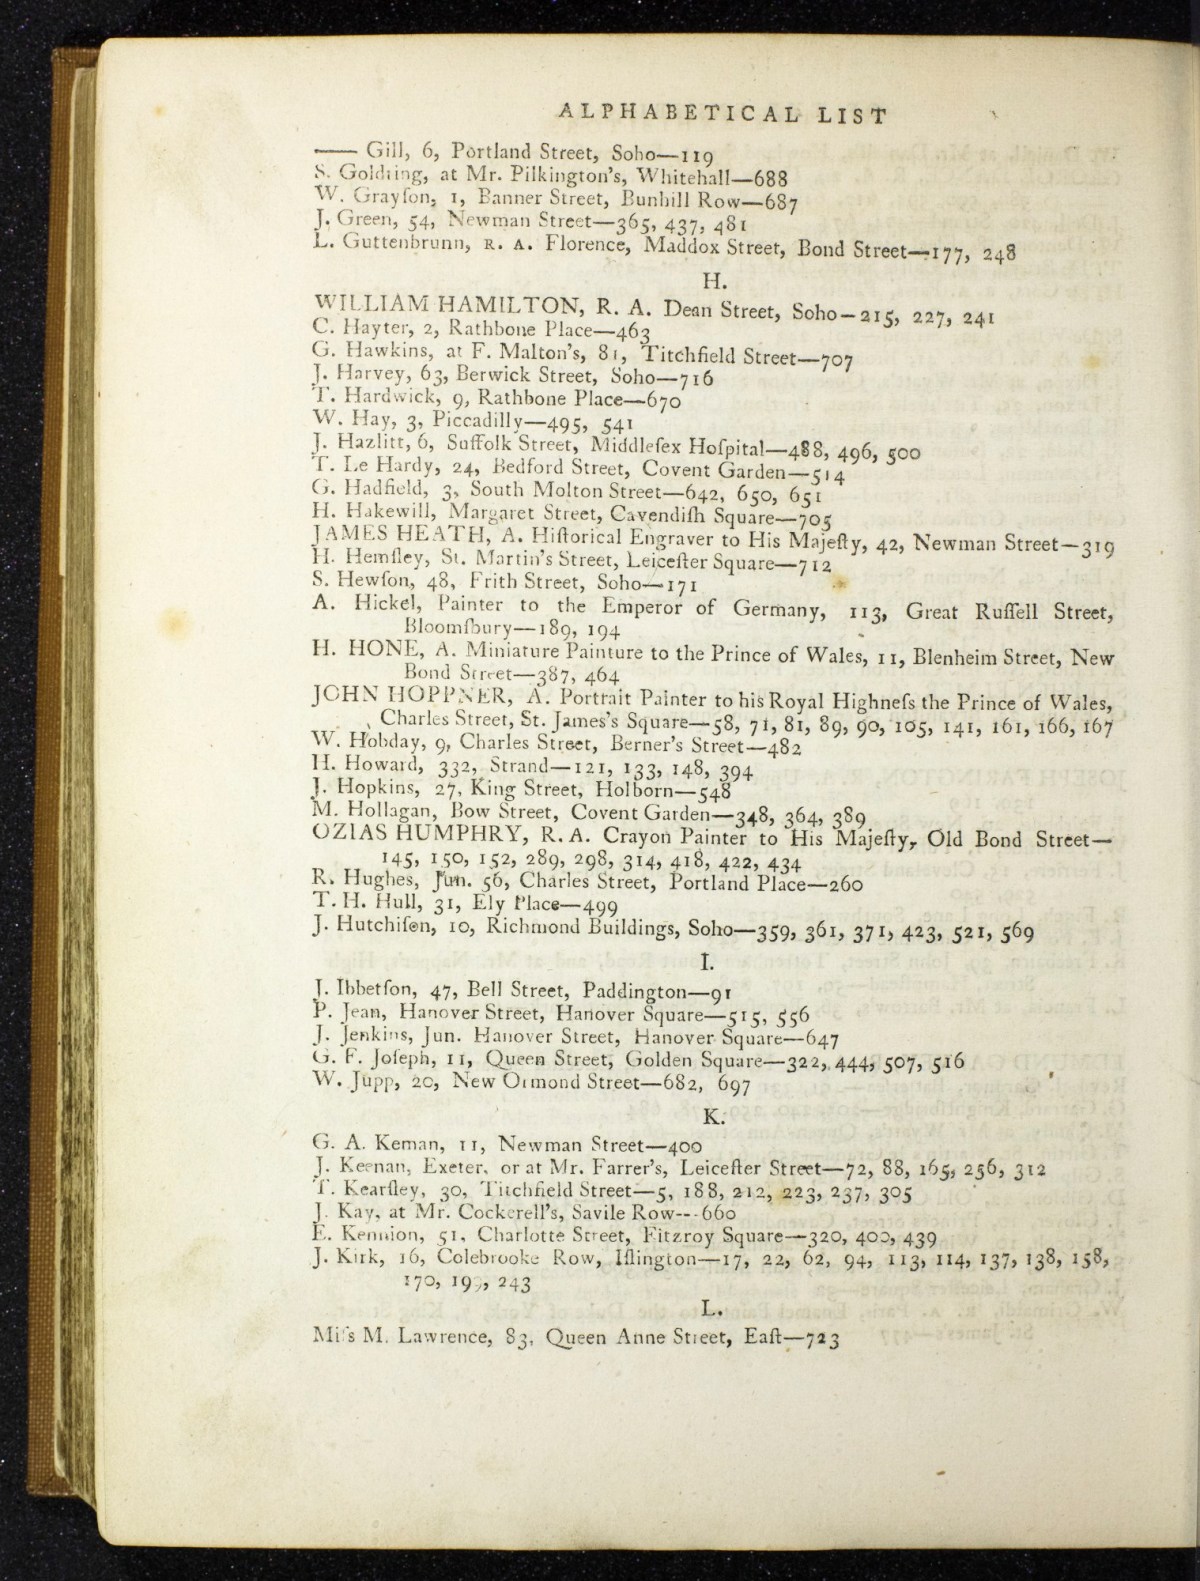 ALPHABETICAL LIST
—— Gill, 6, Portland Street, Soho—119
S. Goldring, at Mr. Pilkington's, Whitehall—688
W. Grayſon, 1, Banner Street, Bunhill Row—687
J. Green, 54, Newman Street—365, 437, 481
L. Guttenbrunn, R. A. Florence, Maddox Street, Bond Street—177, 248
H.
WILLIAM HAMILTON, R. A. Dean Street, Soho—215, 227, 241
C. Hayter, 2, Rathbone Place—463
G. Hawkins, at F. Malton's, 81, Titchfield Street—707
J. Harvey, 63, Berwick Street, Soho—716
T. Hardwick, 9, Rathbone Place—670
W. Hay, 3, Piccadilly—495, 541
J. Hazlitt, 6, Suffolk Street, Middleſex Hoſpital—488, 496, 500
T. Le Hardy, 24, Bedford Street, Covent Garden—514
G. Hadfield, 3, South Molton Street—642, 650, 651
H. Hakewill, Margaret Street, Cavendiſh Square—705
JAMES HEATH, A. Hiſtorical Engraver to His Majeſty, 42, Newman Street—319
H. Hemſley, St. Martin's Street, Leiceſter Square—712
S. Hewſon, 48, Frith Street, Soho—171
A. Hickel, Painter to the Emperor of Germany, 113, Great Ruſſell Street,
Bloomſbury—189, 194
H. HONE, A. Miniature Painture to the Prince of Wales, 11, Blenheim Street, New
Bond Street—387, 464
JOHN HOPPNER, A. Portrait Painter to his Royal Highneſs the Prince of Wales,
Charles Street, St. James's Square—58, 71, 81, 89, 90, 105, 141, 161, 166, 167
W. Hobday, 9, Charles Street, Berner's Street—482
H. Howard, 332, Strand—121, 133, 148, 394
J. Hopkins, 27, King Street, Holborn—548
M. Hollagan, Bow Street, Covent Garden—348, 364, 389
OZIAS HUMPHRY, R. A. Crayon Painter to His Majeſty, Old Bond Street—
145, 150, 152, 289, 298, 314, 418, 422, 434
R. Hughes, Jun. 56, Charles Street, Portland Place—260
T. H. Hull, 31, Ely Place—499
J. Hutchiſon, 10, Richmond Buildings, Soho—359, 361, 371, 423, 521, 569
I.
J. Ibbetſon, 47, Bell Street, Paddington—91
P. Jean, Hanover Street, Hanover Square—515, 556
J. Jenkins, Jun. Hanover Street, Hanover Square—647
G. F. Joſeph, 11, Queen Street, Golden Square—322, 444, 507, 516
W. Jupp, 20, New Ormond Street—682, 697
K.
G. A. Keman, 11, Newman Street—400
J. Keenan, Exeter, or at Mr. Farrer's, Leiceſter Street—72, 88, 165, 256, 312
T. Kearſley, 30, Titchfield Street—5, 188, 212, 223, 237, 305
J. Kay, at Mr. Cockerell's, Savile Row---660
E. Kennion, 51, Charlotte Street, Fitzroy Square—320, 400, 439
J. Kirk, 16, Colebrooke Row, Iſlington—17, 22, 62, 94, 113, 114, 137, 138, 158,
170, 199, 243
L.
Miſs M. Lawrence, 83, Queen Anne Street, Eaſt—723